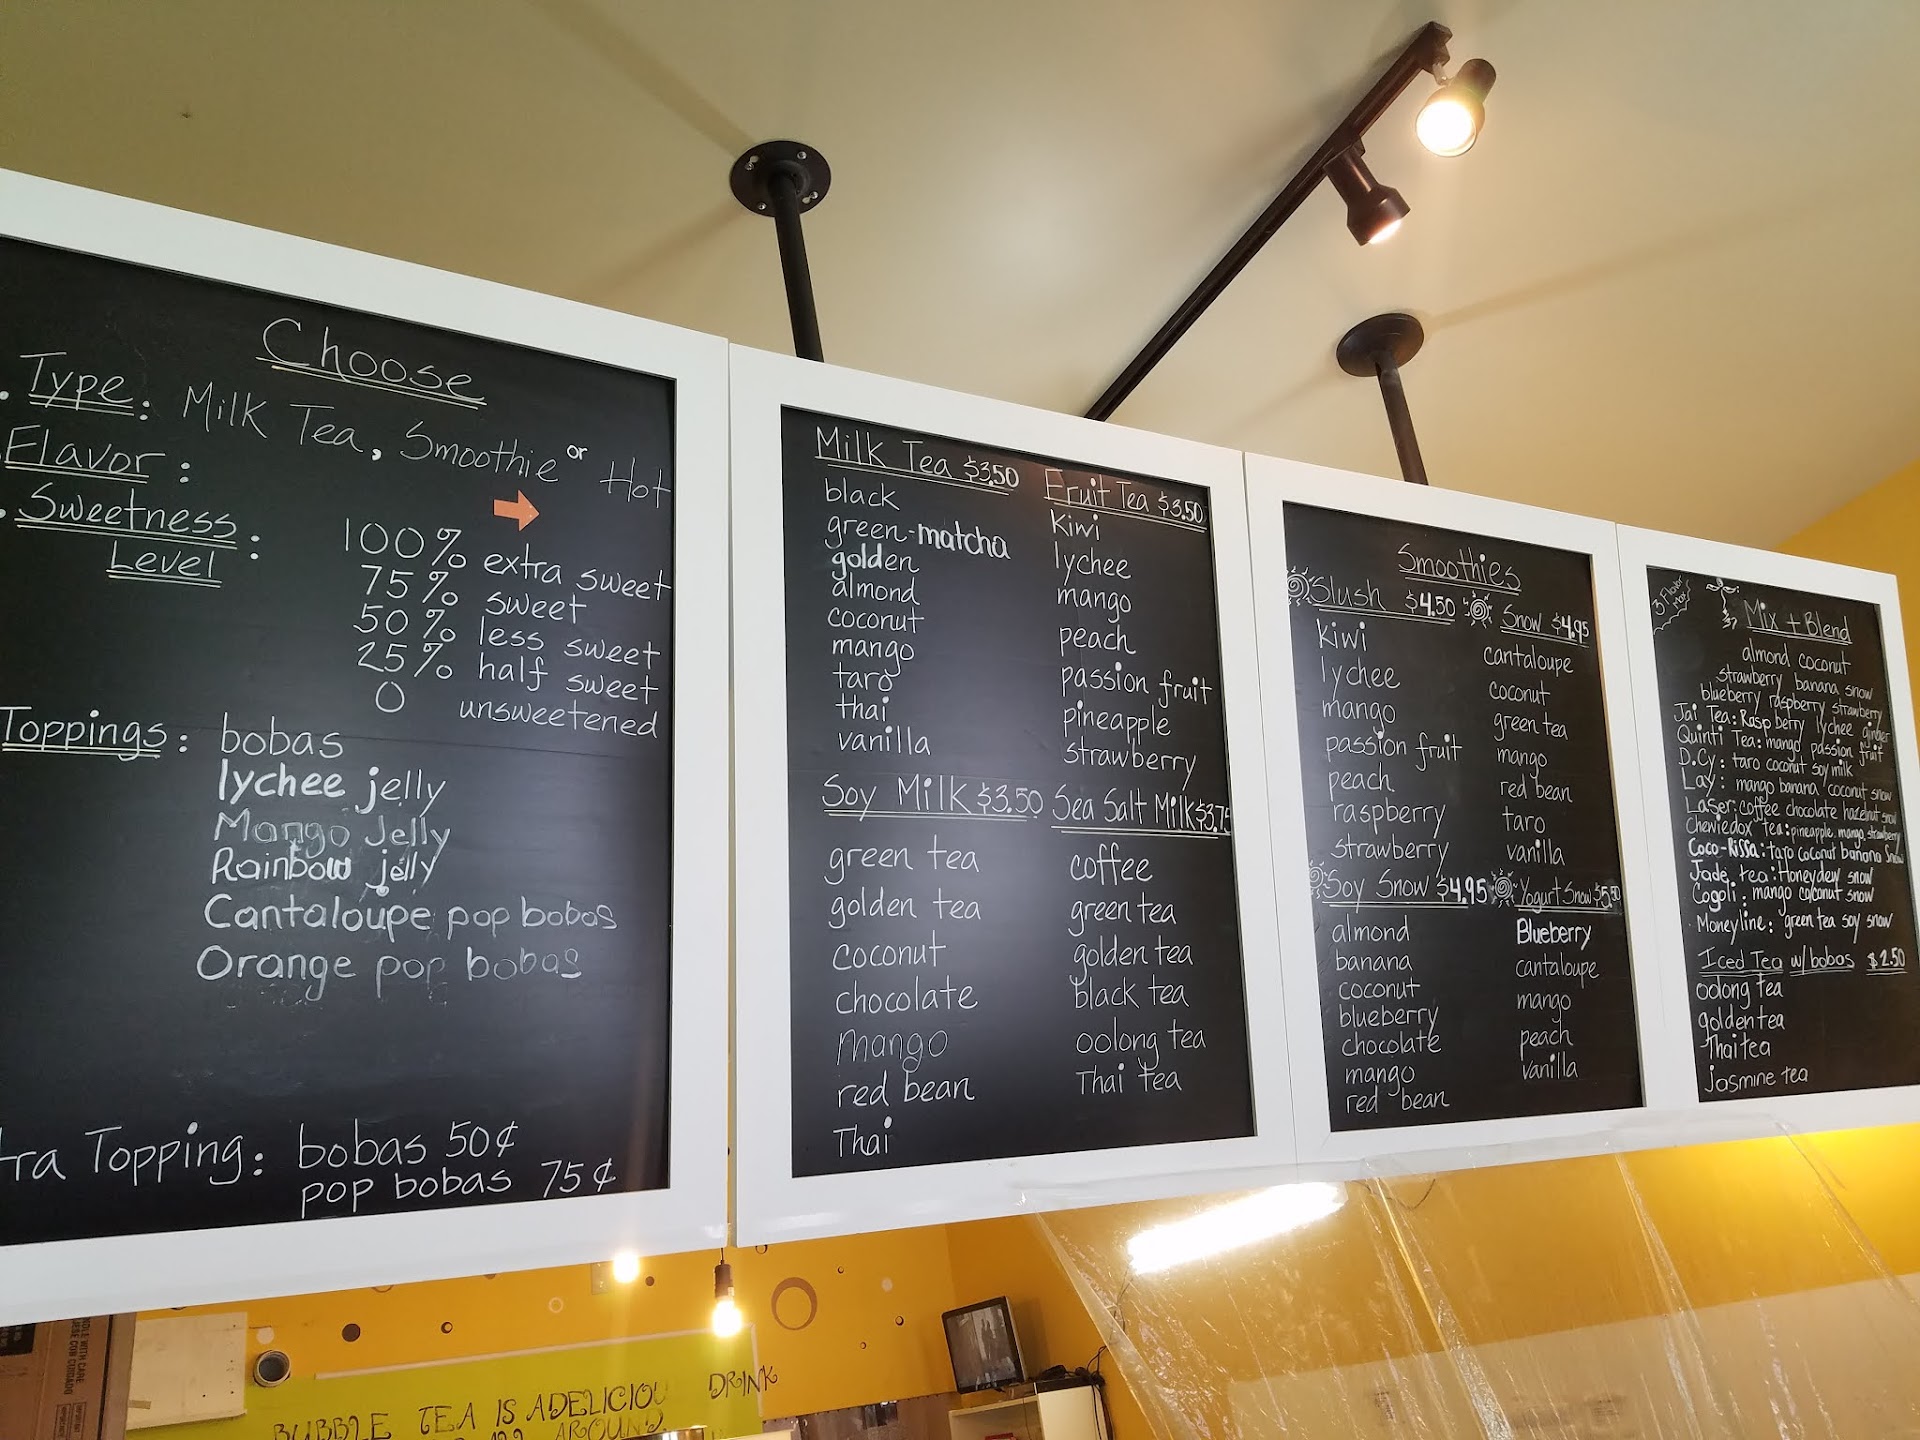 Choose
Type: Milk Tea, Smoothie or Hot
Flavor:
Sweetness Level:
100% extra sweet
75% sweet
50% less sweet
25% half sweet
0 unsweetened
Toppings: bobas
lychee jelly
Mango Jelly
Rainbow jelly
Cantaloupe pop bobas
Orange pop bobas
tra Topping: bobas 50¢
pop bobas 75¢
Milk Tea $3.50
black
green-matcha
golden
almond
coconut
mango
taro
thai
vanilla
Fruit Tea $3.50
kiwi
lychee
mango
peach
passion fruit
pineapple
strawberry
Soy Milk $3.50
green tea
golden tea
coconut
chocolate
Mango
red bean
Thai
Sea Salt Milk $3.75
coffee
green tea
golden tea
black tea
oolong tea
Thai tea
Smoothies
Slush $4.50
kiwi
lychee
mango
passion fruit
peach
raspberry
strawberry
Snow $4.95
cantaloupe
coconut
green tea
mango
red bean
taro
vanilla
Soy Snow $4.95
almond
banana
coconut
blueberry
chocolate
mango
red bean
Yogurt Snow $5.50
Blueberry
cantaloupe
mango
peach
vanilla
3 Flavor Max
Mix + Blend
almond coconut
strawberry banana snow
blueberry raspberry strawberry
Jai Tea: Raspberry lychee ginger
Quinti Tea: mango passion fruit
D.Cy: taro coconut soy milk
Lay: mango banana coconut snow
Laser: coffee chocolate hazelnut snow
Chewiedox Tea: pineapple mango strawberry
Coco-Rissa: taro coconut banana snow
Jade tea: Honeydew snow
Cogoli: mango coconut snow
Moneyline: green tea soy snow
Iced Tea w/ bobas $2.50
oolong tea
golden tea
Thai tea
jasmine tea
BUBBLE TEA IS A DELICIOU DRINK
AROUND